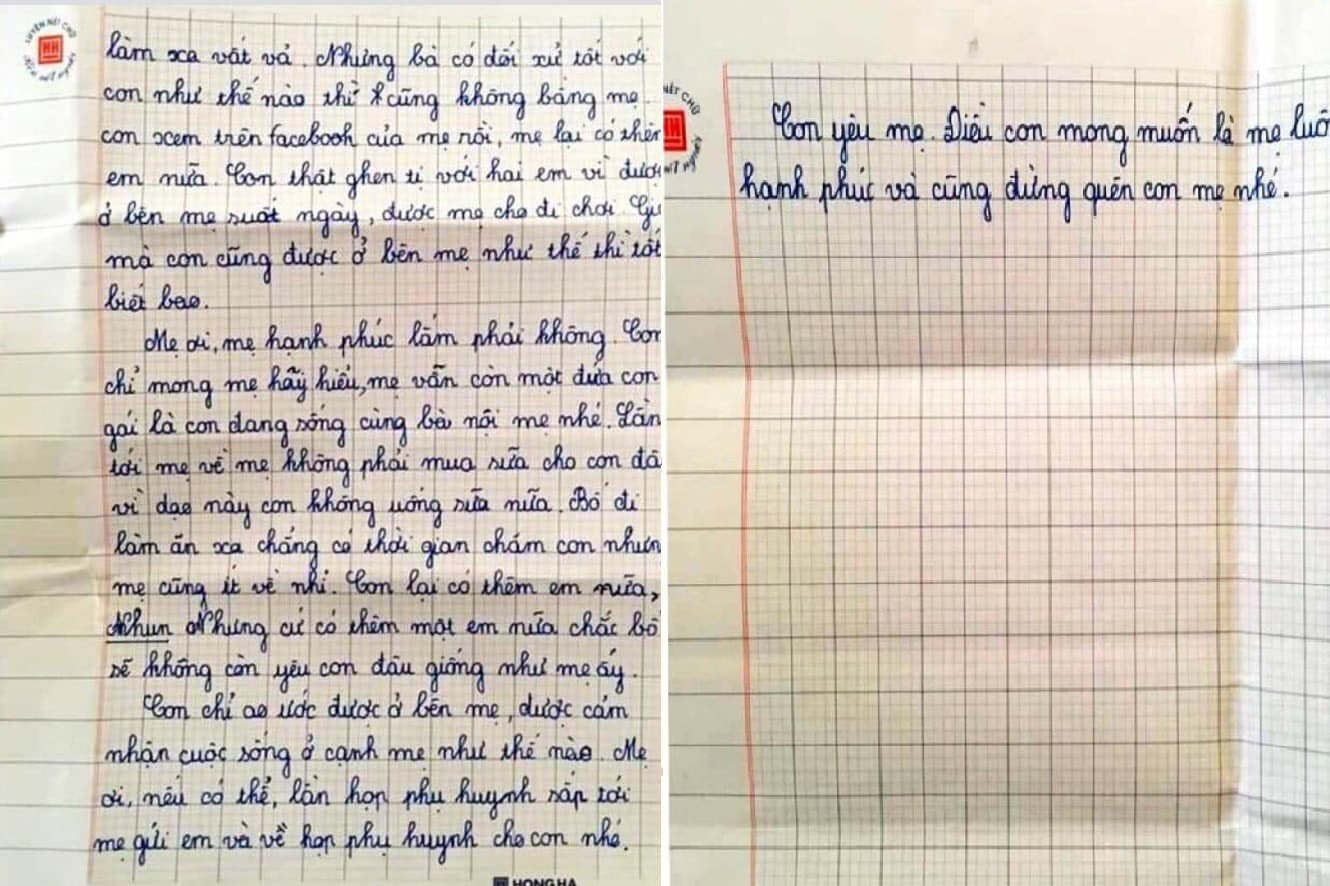 LUYỆN NÉT CHỮ
HH
làm xa vất vả. Nhưng bà có đối xử tốt với
con như thế nào thì cũng không bằng mẹ.
con xem trên facebook của mẹ rồi, mẹ lại có thêm
em nữa. Con thật ghen tị với hai em vì được
ở bên mẹ suốt ngày, được mẹ cho đi chơi. Gi
mà con cũng được ở bên mẹ như thế thì tốt
biết bao.
Mẹ ơi, mẹ hạnh phúc lắm phải không. Con
chỉ mong mẹ hãy hiểu, mẹ vẫn còn một đứa con
gái là con đang sống cùng bà nội mẹ nhé. Lần
tới mẹ về mẹ không phải mua sữa cho con đâ
vì dạo này con không uống sữa nữa. Bố đi
làm ăn xa chẳng có thời gian chăm con nhưn
mẹ cũng ít về nhỉ. Con lại có thêm em nữa,
Nhun Nhưng cứ có thêm một em nữa chắc bố
sẽ không còn yêu con đâu giống như mẹ ấy.
Con chỉ ao ước được ở bên mẹ, được cảm
nhận cuộc sống ở cạnh mẹ như thế nào. Mẹ
ơi, nếu có thể, lần họp phụ huynh sắp tới
mẹ gửi em và về họp phụ huynh cho con nhé.
HONG HA
NÉT CHỮ
Con yêu mẹ. Điều con mong muốn là mẹ luô
hạnh phúc và cũng đừng quên con mẹ nhé.